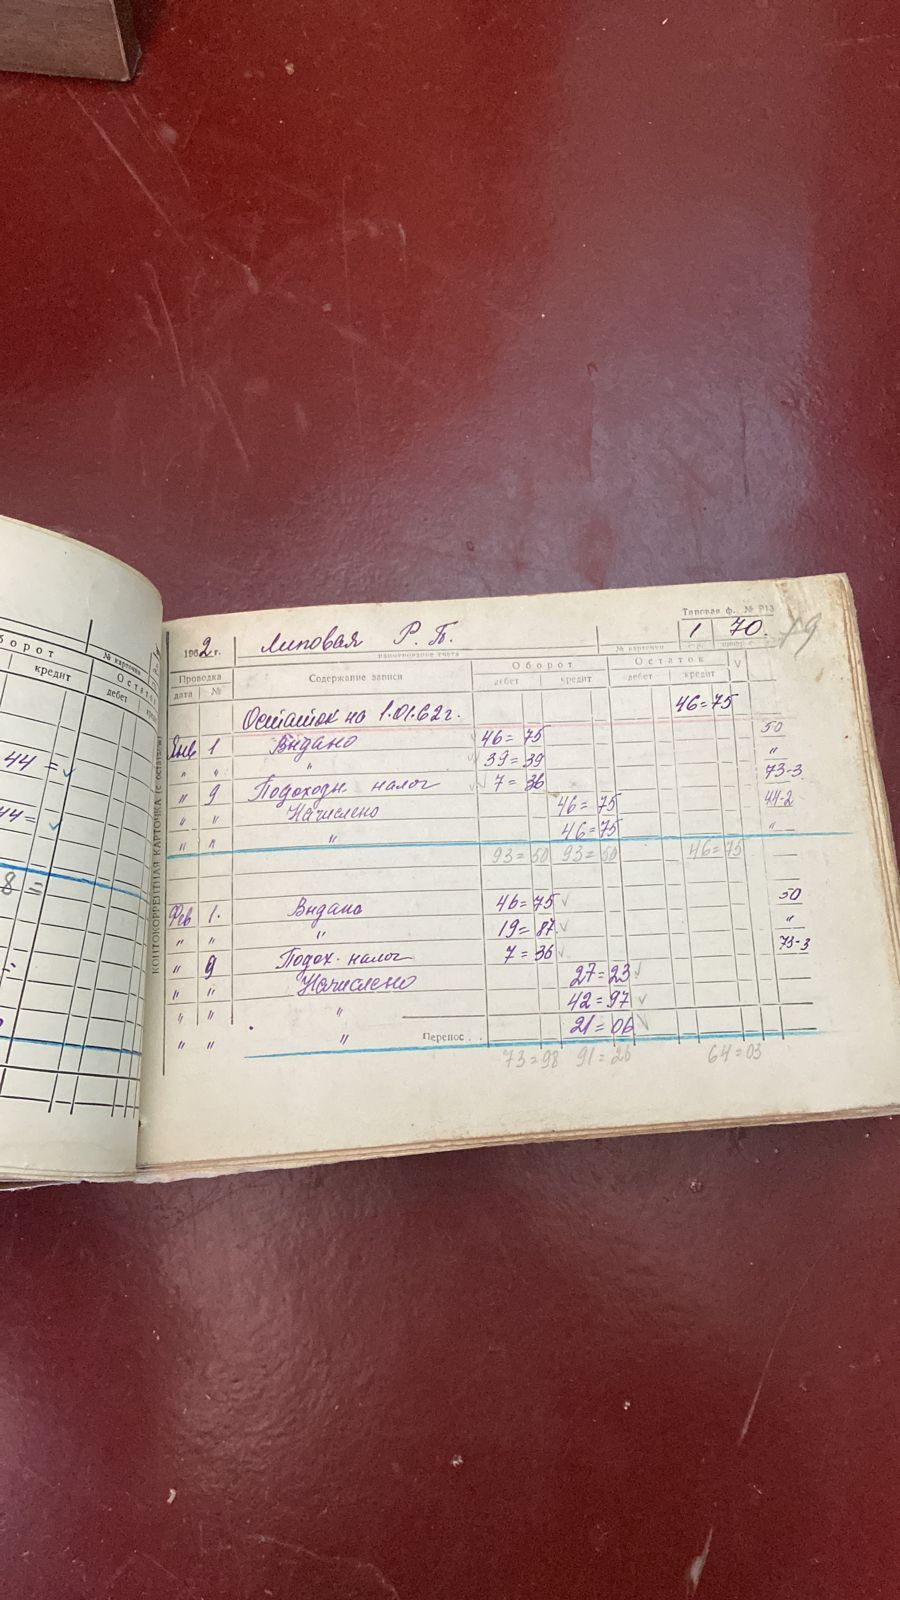 Типовая ф. № Р13
1962 г. Липовая Р. Б. 1 70. 79
наименование счета № карточки
Проводка Содержание записи Оборот Остаток V
дата № дебет кредит дебет кредит
Остаток на 1.01.62 г. 46=75
Янв 1 Выдано 46=75 50
" " " 39=39 "
" 9 Подоходн. налог 7=36 73-3
" " Начислено 46=75 44-2
" " " 46=75 "
93=50 93=50 46=75
Фев 1. Выдано 46=75 50
" " " 19=87 "
" 9 Подох. налог 7=36 73-3
" " Начислено 27=23
" " " 42=97
" " " Перенос . . 21=06
73=98 91=26 64=03
КОНТОКОРРЕНТНАЯ КАРТОЧКА (с остатком)
борот № карточки
кредит Остат
дебет
44=
44=
8=